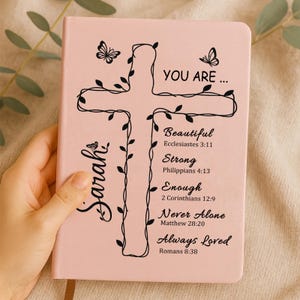 YOU ARE ...
Beautiful
Ecclesiastes 3:11
Strong
Philippians 4:13
Enough
2 Corinthians 12:9
Never Alone
Matthew 28:20
Always Loved
Romans 8:38
Sarah